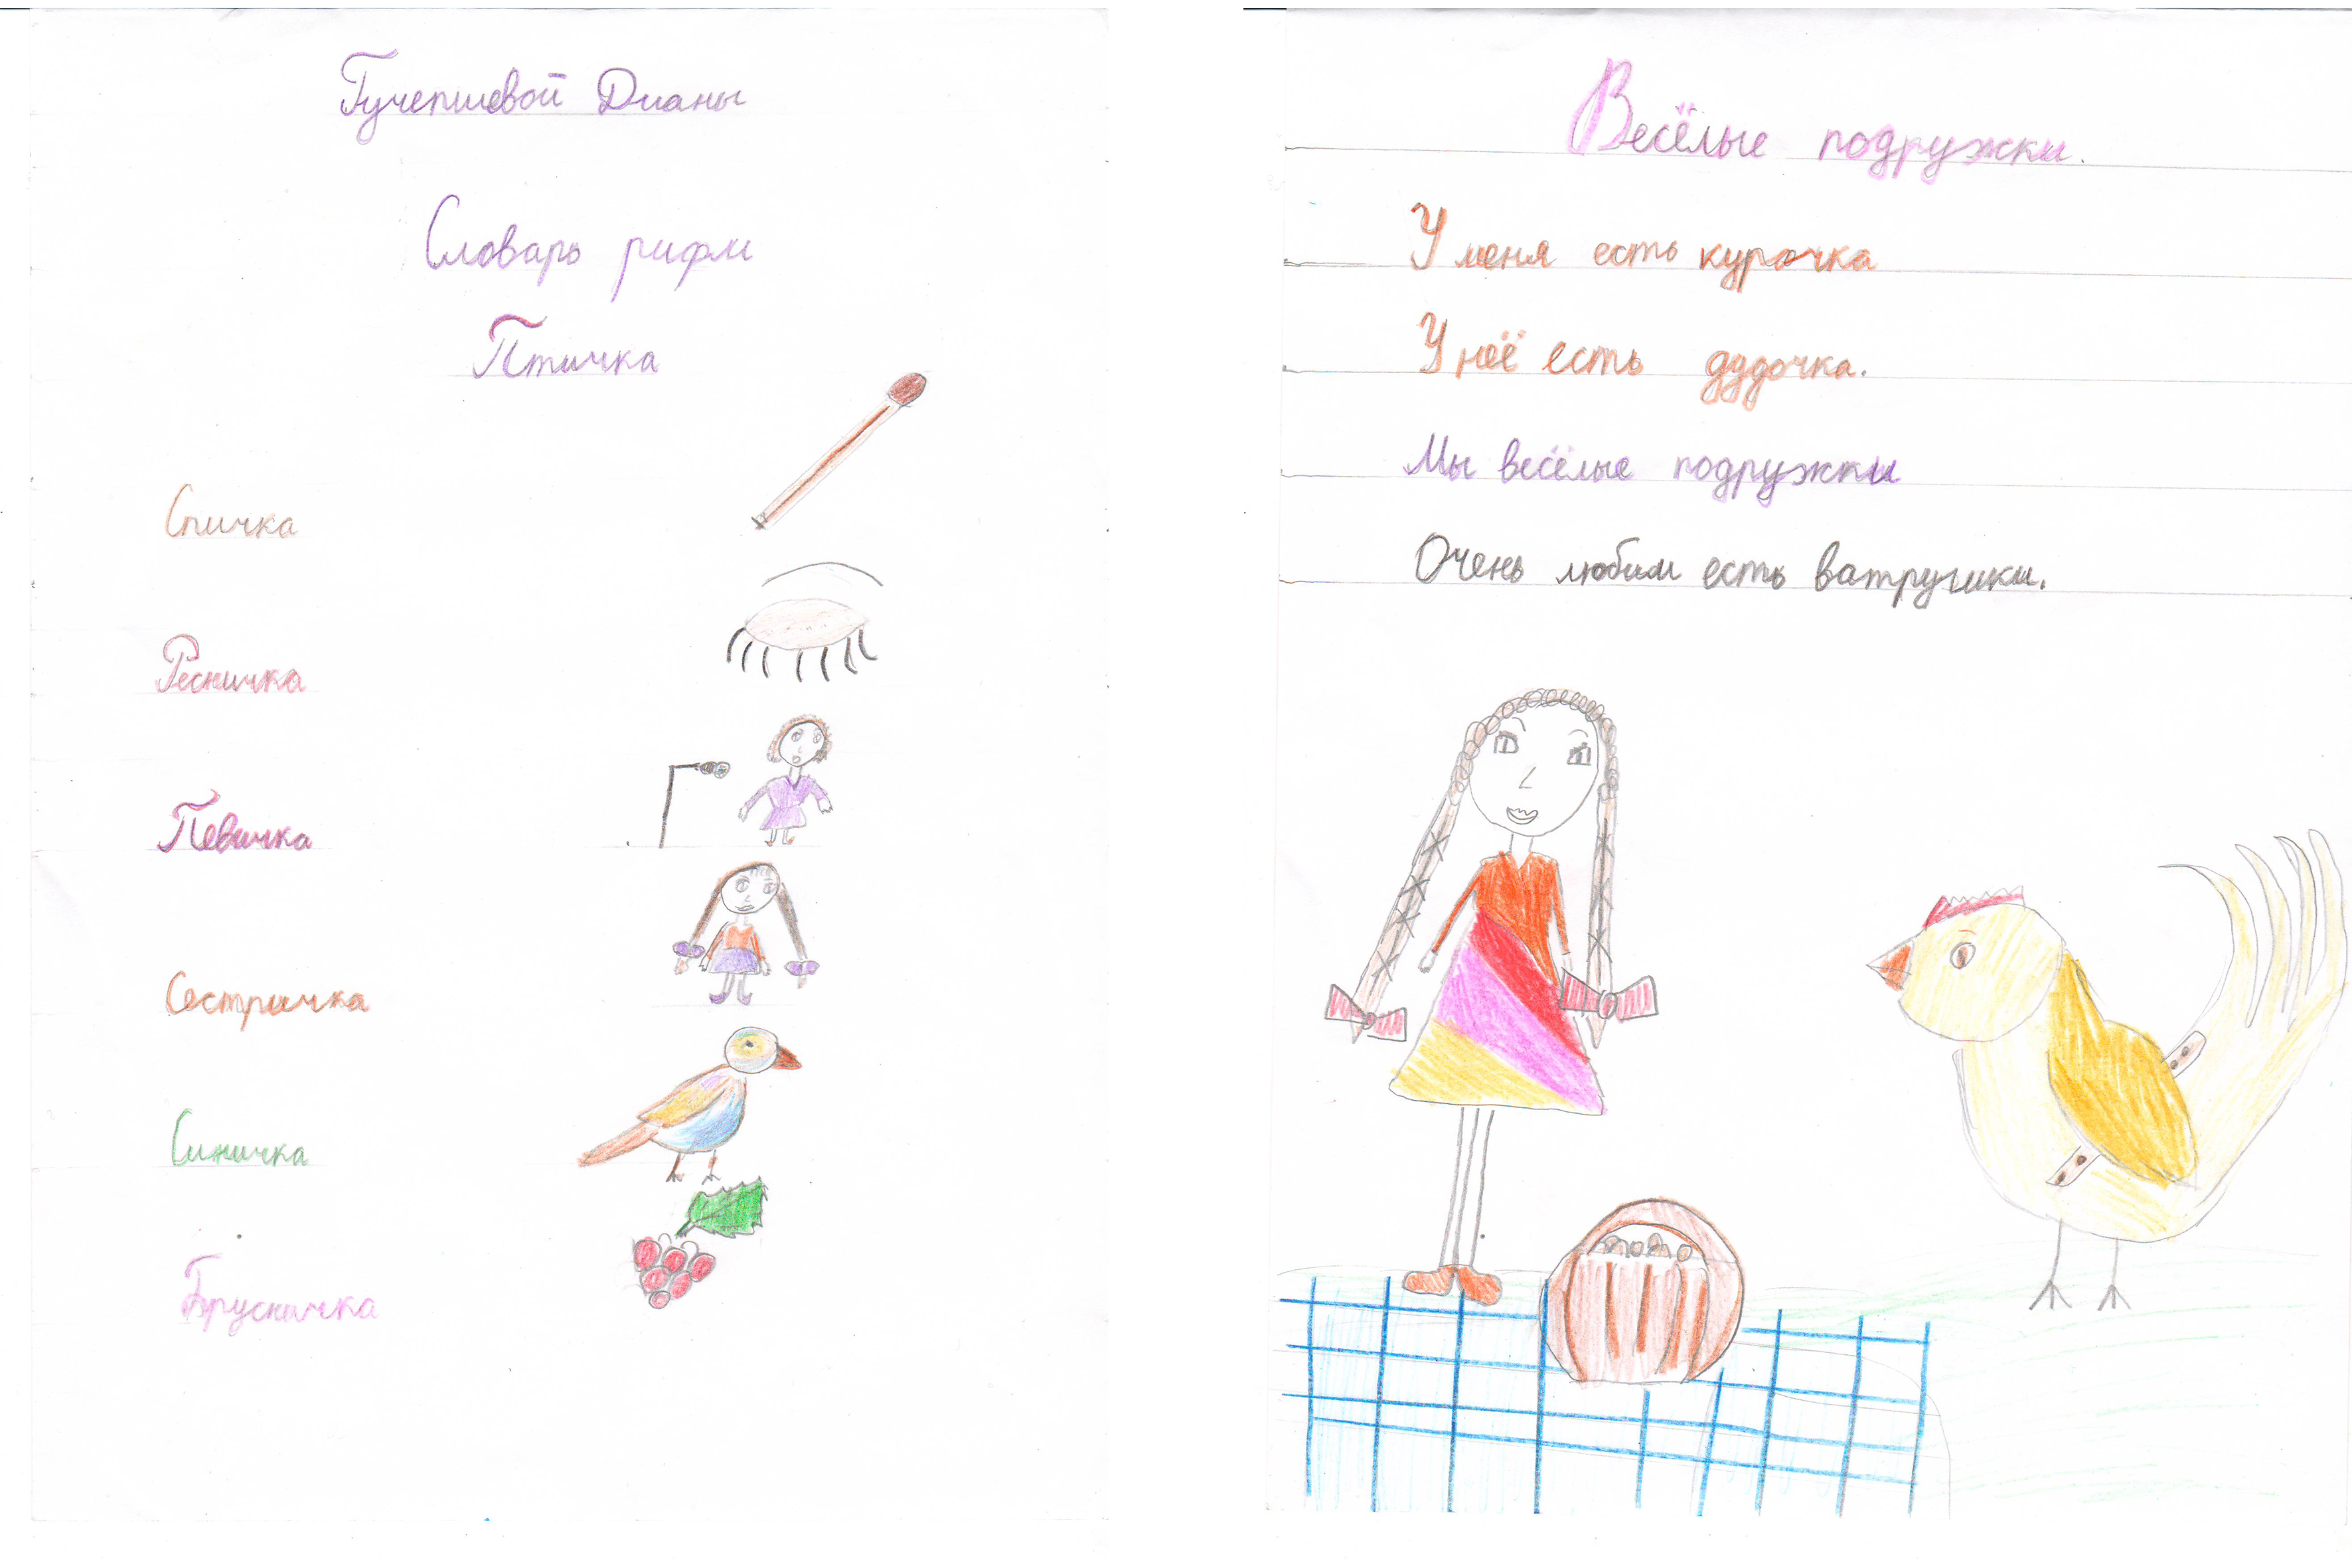 Гучепшевой Дианы
Словарь рифм
Птичка
Спичка
Ресничка
Певичка
Сестричка
Синичка
Брусничка
Весёлые подружки.
У меня есть курочка
У неё есть дудочка.
Мы весёлые подружки
Очень любим есть ватрушки.